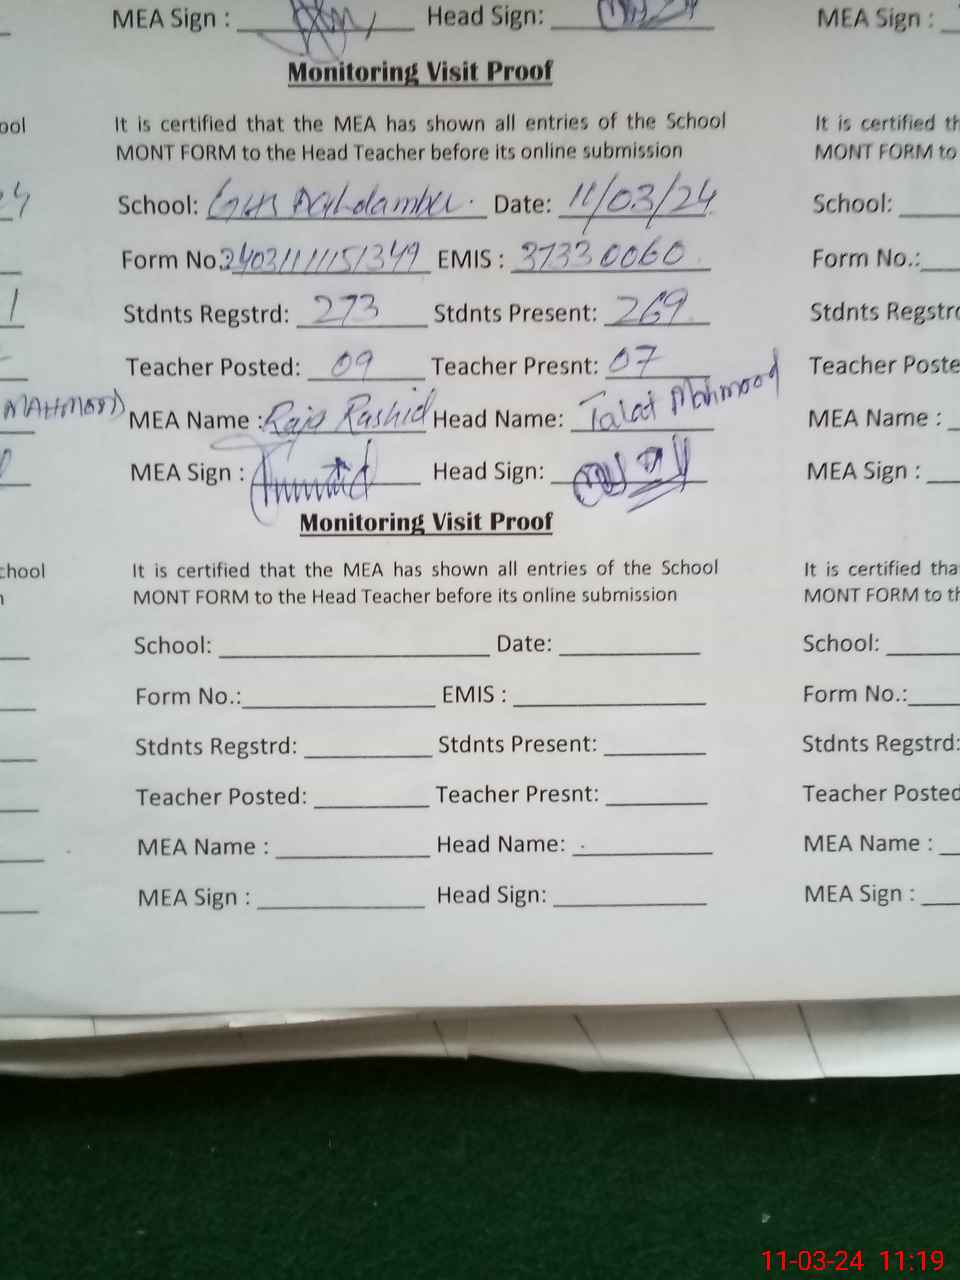 MEA Sign : Head Sign: MEA Sign :
Monitoring Visit Proof
ool It is certified that the MEA has shown all entries of the School It is certified th
MONT FORM to the Head Teacher before its online submission MONT FORM to
School: GHS Date: 11/03/24 School:
Form No. EMIS : 37330060 Form No.:
Stdnts Regstrd: 273 Stdnts Present: 269 Stdnts Regstrd
Teacher Posted: 09 Teacher Presnt: 07 Teacher Poste
MAHMOOD MEA Name : Raja Rashid Head Name: Talat Mahmood MEA Name :
MEA Sign : Head Sign: MEA Sign :
Monitoring Visit Proof
chool It is certified that the MEA has shown all entries of the School It is certified tha
n MONT FORM to the Head Teacher before its online submission MONT FORM to th
School: Date: School:
Form No.: EMIS : Form No.:
Stdnts Regstrd: Stdnts Present: Stdnts Regstrd:
Teacher Posted: Teacher Presnt: Teacher Posted
MEA Name : Head Name: MEA Name :
MEA Sign : Head Sign: MEA Sign :
11-03-24 11:19